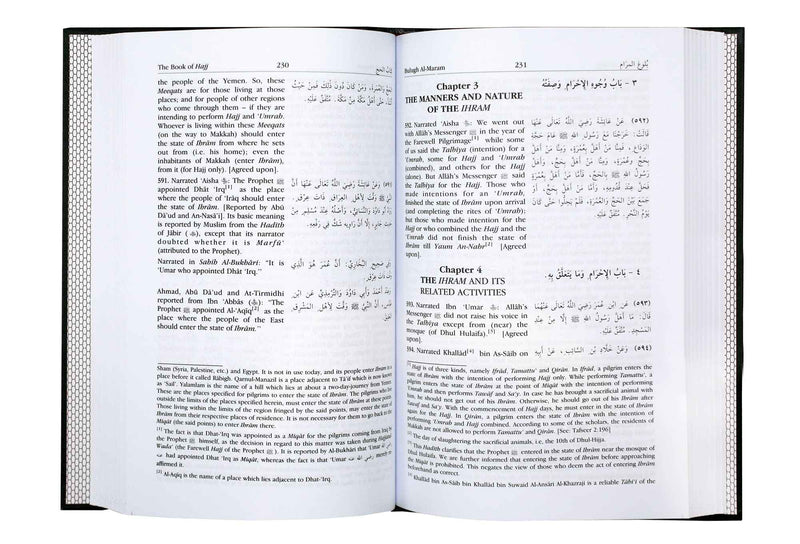 The Book of Hajj 230 كتاب الحج
the people of the Yemen. So, these
Meeqats are for those living at those
places; and for people of other regions
who come through them – if they are
intending to perform Hajj and 'Umrah.
Whoever is living within these Meeqats
(on the way to Makkah) should enter
the state of Ihram from where he sets
out from (i.e. his home); even the
inhabitants of Makkah (enter Ihram),
from it (for Hajj only). [Agreed upon].
391. Narrated 'Aisha ؓ: The Prophet ﷺ
appointed Dhât 'Irq[1] as the place
where the people of 'Irâq should enter
the state of Ihrâm. [Reported by Abû
Dâ'ud and An-Nasâ'i]. Its basic meaning
is reported by Muslim from the Hadith
of Jâbir (ؓ), except that its narrator
doubted whether it is Marfu'
(attributed to the Prophet).
Narrated in Sahîh Al-Bukhâri: "It is
'Umar who appointed Dhât 'Irq."
Ahmad, Abû Dâ'ud and At-Tirmidhi
reported from Ibn 'Abbâs (ؓ): "The
Prophet ﷺ appointed Al-'Aqîq[2] as the
place where the people of the East
should enter the state of Ihrâm."
Sham (Syria, Palestine, etc.) and Egypt. It is not in use today, and its people enter Ihrâm in a
place before it called Râbigh. Qarnul-Manazil is a place adjacent to Tâ'if which is now known
as 'Sail'. Yalamlam is the name of a hill which lies at about a two-day-journey from Yemen.
These are the places specified for pilgrims to enter the state of Ihrâm. The pilgrims who live
outside the limits of the places specified herein, must enter the state of Ihrâm at these points.
Those living within the limits of the region fringed by the said points, may enter the state of
Ihrâm from their respective places of residence. It is not necessary for them to go back to the
Miqât (the said points) to enter Ihrâm there.
[1] The fact is that Dhat-'Irq was appointed as a Miqât for the pilgrims coming from Irâq by
the Prophet ﷺ himself, as the decision in regard to this matter was taken during Hajjatul
Wada' (the Farewell Hajj of the Prophet ﷺ). It is reported by Al-Bukhâri that 'Umar رضي الله عنه
had appointed Dhat 'Irq as Miqât, whereas the fact is that 'Umar رضي الله عنه merely
affirmed it.
[2] Al-Aqîq is the name of a place which lies adjacent to Dhat-'Irq.
Bulugh Al-Maram 231 بلوغ المرام
Chapter 3
THE MANNERS AND NATURE
OF THE IHRAM
٣ - بَابُ وُجُوهِ الإِحْرَامِ وَصِفَتُهُ
592. Narrated 'Aisha ؓ: We went out
with Allâh's Messenger ﷺ in the year of
the Farewell Pilgrimage[1] while some
of us said the Talbiya (intention) for a
Umra, some for Hajj and 'Umrah
(combined), and others for the Hajj
(alone). But Allâh's Messenger ﷺ said
the Talbiya for the Hajj. Those who
made intentions for an 'Umrah,
finished the state of Ihrâm upon arrival
(and completing the rites of 'Umrah);
but those who made intention for the
Hajj or who combined the Hajj and the
Umrah did not finish the state of
Ihrâm till Yaum An-Nahr[2] [Agreed
upon].
(٥٩٢) عَنْ عَائِشَةَ رَضِيَ اللَّهُ تَعَالَى عَنْهَا
قَالَتْ: خَرَجْنَا مَعَ رَسُولِ اللَّهِ ﷺ عَامَ حَجَّةِ
الْوَدَاعِ، فَمِنَّا مَنْ أَهَلَّ بِعُمْرَةٍ، وَمِنَّا مَنْ أَهَلَّ
بِحَجٍّ وَعُمْرَةٍ، وَمِنَّا مَنْ أَهَلَّ بِحَجٍّ، وَأَهَلَّ
رَسُولُ اللَّهِ ﷺ بِالْحَجِّ، فَأَمَّا مَنْ أَهَلَّ بِعُمْرَةٍ
فَحَلَّ عِنْدَ قُدُومِهِ، وَأَمَّا مَنْ أَهَلَّ بِحَجٍّ، أَوْ
جَمَعَ بَيْنَ الْحَجِّ وَالْعُمْرَةِ، فَلَمْ يَحِلُّوا حَتَّى كَانَ
يَوْمُ النَّحْرِ. مُتَّفَقٌ عَلَيْهِ.
Chapter 4
THE IHRAM AND ITS
RELATED ACTIVITIES
٤ - بَابُ الإِحْرَامِ وَمَا يَتَعَلَّقُ بِهِ.
593. Narrated Ibn 'Umar ؓ: Allâh's
Messenger ﷺ did not raise his voice in
the Talbiya except from (near) the
mosque (of Dhul Hulaifa). [Agreed
upon].
(٥٩٣) عَنِ ابْنِ عُمَرَ رَضِيَ اللَّهُ تَعَالَى عَنْهُمَا
قَالَ: مَا أَهَلَّ رَسُولُ اللَّهِ ﷺ إِلَّا مِنْ عِنْدِ
الْمَسْجِدِ. مُتَّفَقٌ عَلَيْهِ.
594. Narrated Khallâd[4] bin As-Sâib on
(٥٩٤) وَعَنْ خَلَّادِ بْنِ السَّائِبِ، عَنْ أَبِيهِ
[1] Hajj is of three kinds, namely Ifrâd, Tamattu' and Qirân. In Ifrâd, a pilgrim enters the
state of Ihrâm with the intention of performing Hajj only. While performing Tamattu', a
pilgrim enters the state of Ihrâm at the point of Miqât with the intention of performing
Umrah and then performs Tawâf and Sa'y. In case he has brought a sacrificial animal with
him, he should not get out of his Ihrâm. Otherwise, he should go out of his Ihrâm after
Tawâf and Sa'y. With the commencement of Hajj days, he must enter in the state of Ihrâm
again for the Hajj. In Qirân, a pilgrim enters the state of Ihrâm with the intention of
performing Umrah and Hajj combined. According to some of the scholars, the residents of
Makkah are not allowed to perform Tamattu' and Qirân. [See: Tafseer 2:196]
[2] The day of slaughtering the sacrificial animals, i.e. the 10th of Dhul-Hijja.
[3] This Hadîth clarifies that the Prophet ﷺ entered in the state of Ihrâm near the mosque of
Dhul Hulaifa. We are further informed that entering the state of Ihrâm before approaching
the Miqât is prohibited. This negates the view of those who deem the act of entering Ihrâm
beforehand as correct.
[4] Khallad bin As-Sâib bin Khallad bin Suwaid Al-Ansâri Al-Khazraji is a reliable Tâbi'i of the